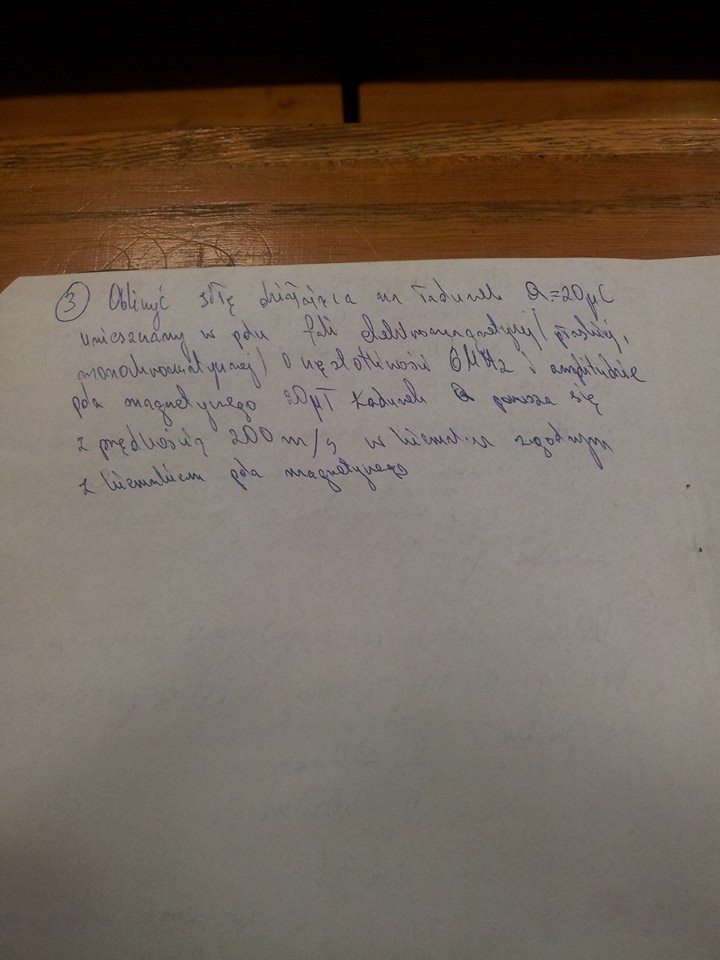 ③ Obliczyć siłę działającą na ładunek Q=20μC
umieszczony w polu fali elektromagnetycznej / płaskiej,
monochromatycznej / o częstotliwości 6MHz i amplitudzie
pola magnetycznego 20μT Ładunek Q porusza się
z prędkością 200 m/s w kierunku zgodnym
z kierunkiem pola magnetycznego